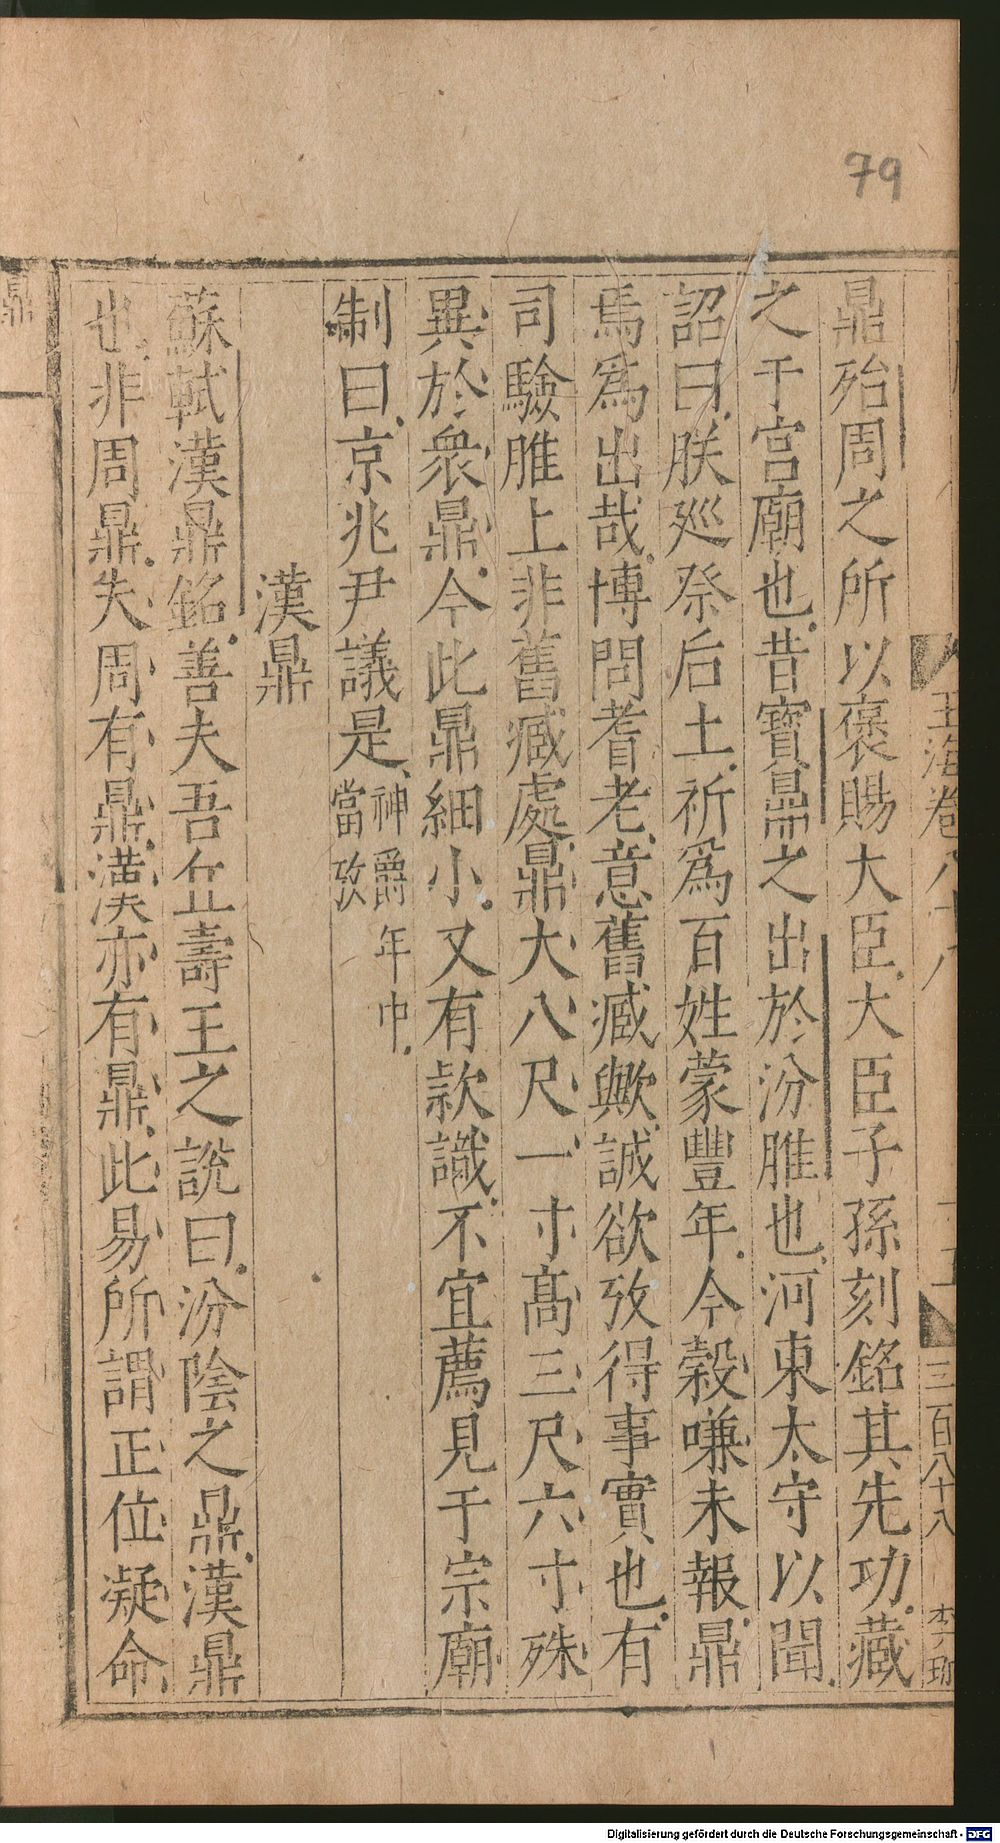 79
玉海卷八十八
十五
三百八十八
鼎殆周之所以褒賜大臣大臣子孫刻銘其先功藏
之于宫廟也昔寶鼎之出於汾脽也河東太守以聞
詔曰朕廵祭后土祈爲百姓蒙豐年今穀嗛未報鼎
焉爲出哉博問耆老意舊臧與誠欲攷得事實也有
司驗脽上非舊臧處鼎大八尺一寸髙三尺六寸殊
異於衆鼎今此鼎細小又有款識不宜薦見于宗廟
制曰京兆尹議是神爵年中當攷
漢鼎
蘇軾漢鼎銘善夫吾丘壽王之說曰汾陰之鼎漢鼎
也非周鼎失周有鼎漢亦有鼎此易所謂正位凝命
鼎
Digitalisierung gefördert durch die Deutsche Forschungsgemeinschaft - DFG